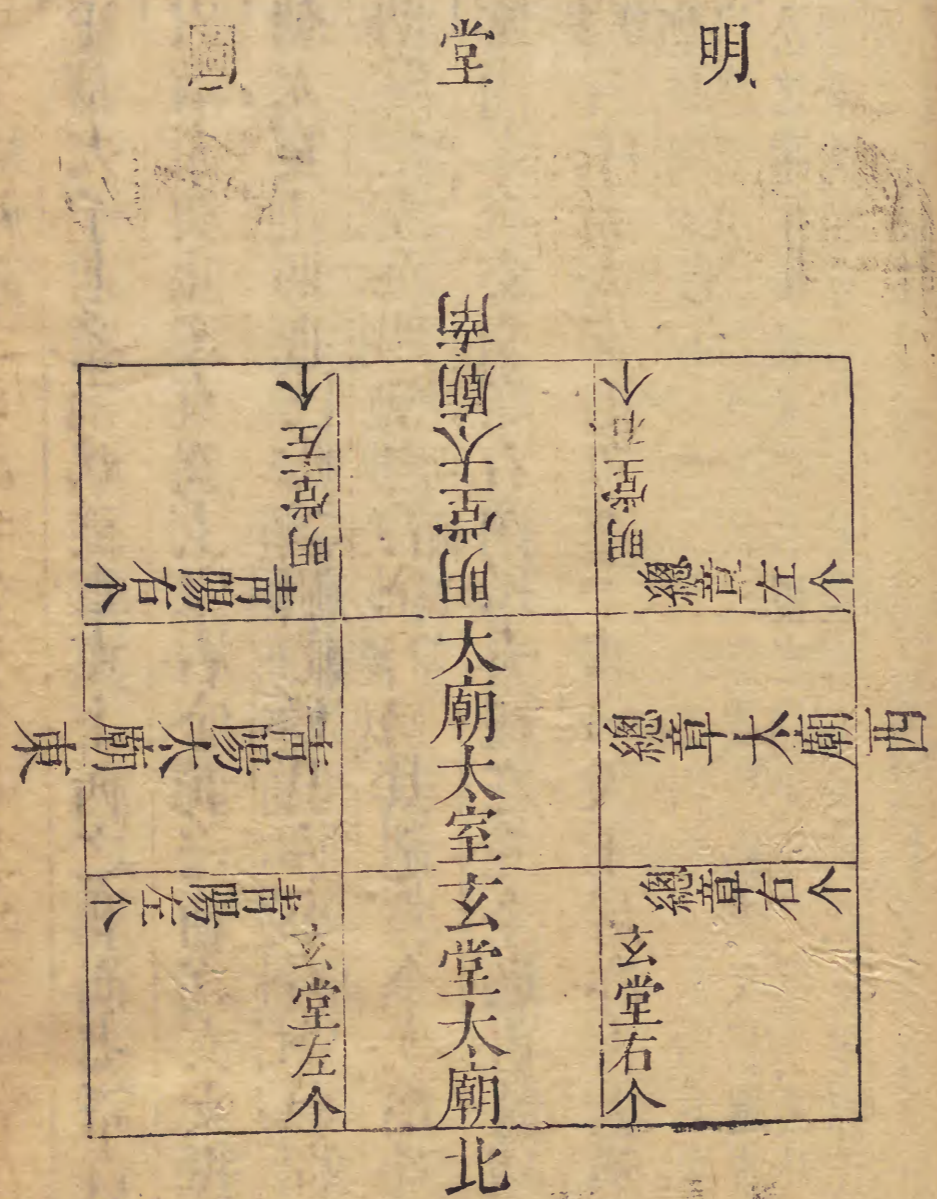 明堂圖
南
明堂太廟
明堂右个
明堂左个
總章左个
青陽右个
西
總章太廟
太廟太室
青陽太廟
東
總章右个
青陽左个
玄堂右个
玄堂太廟
玄堂左个
北